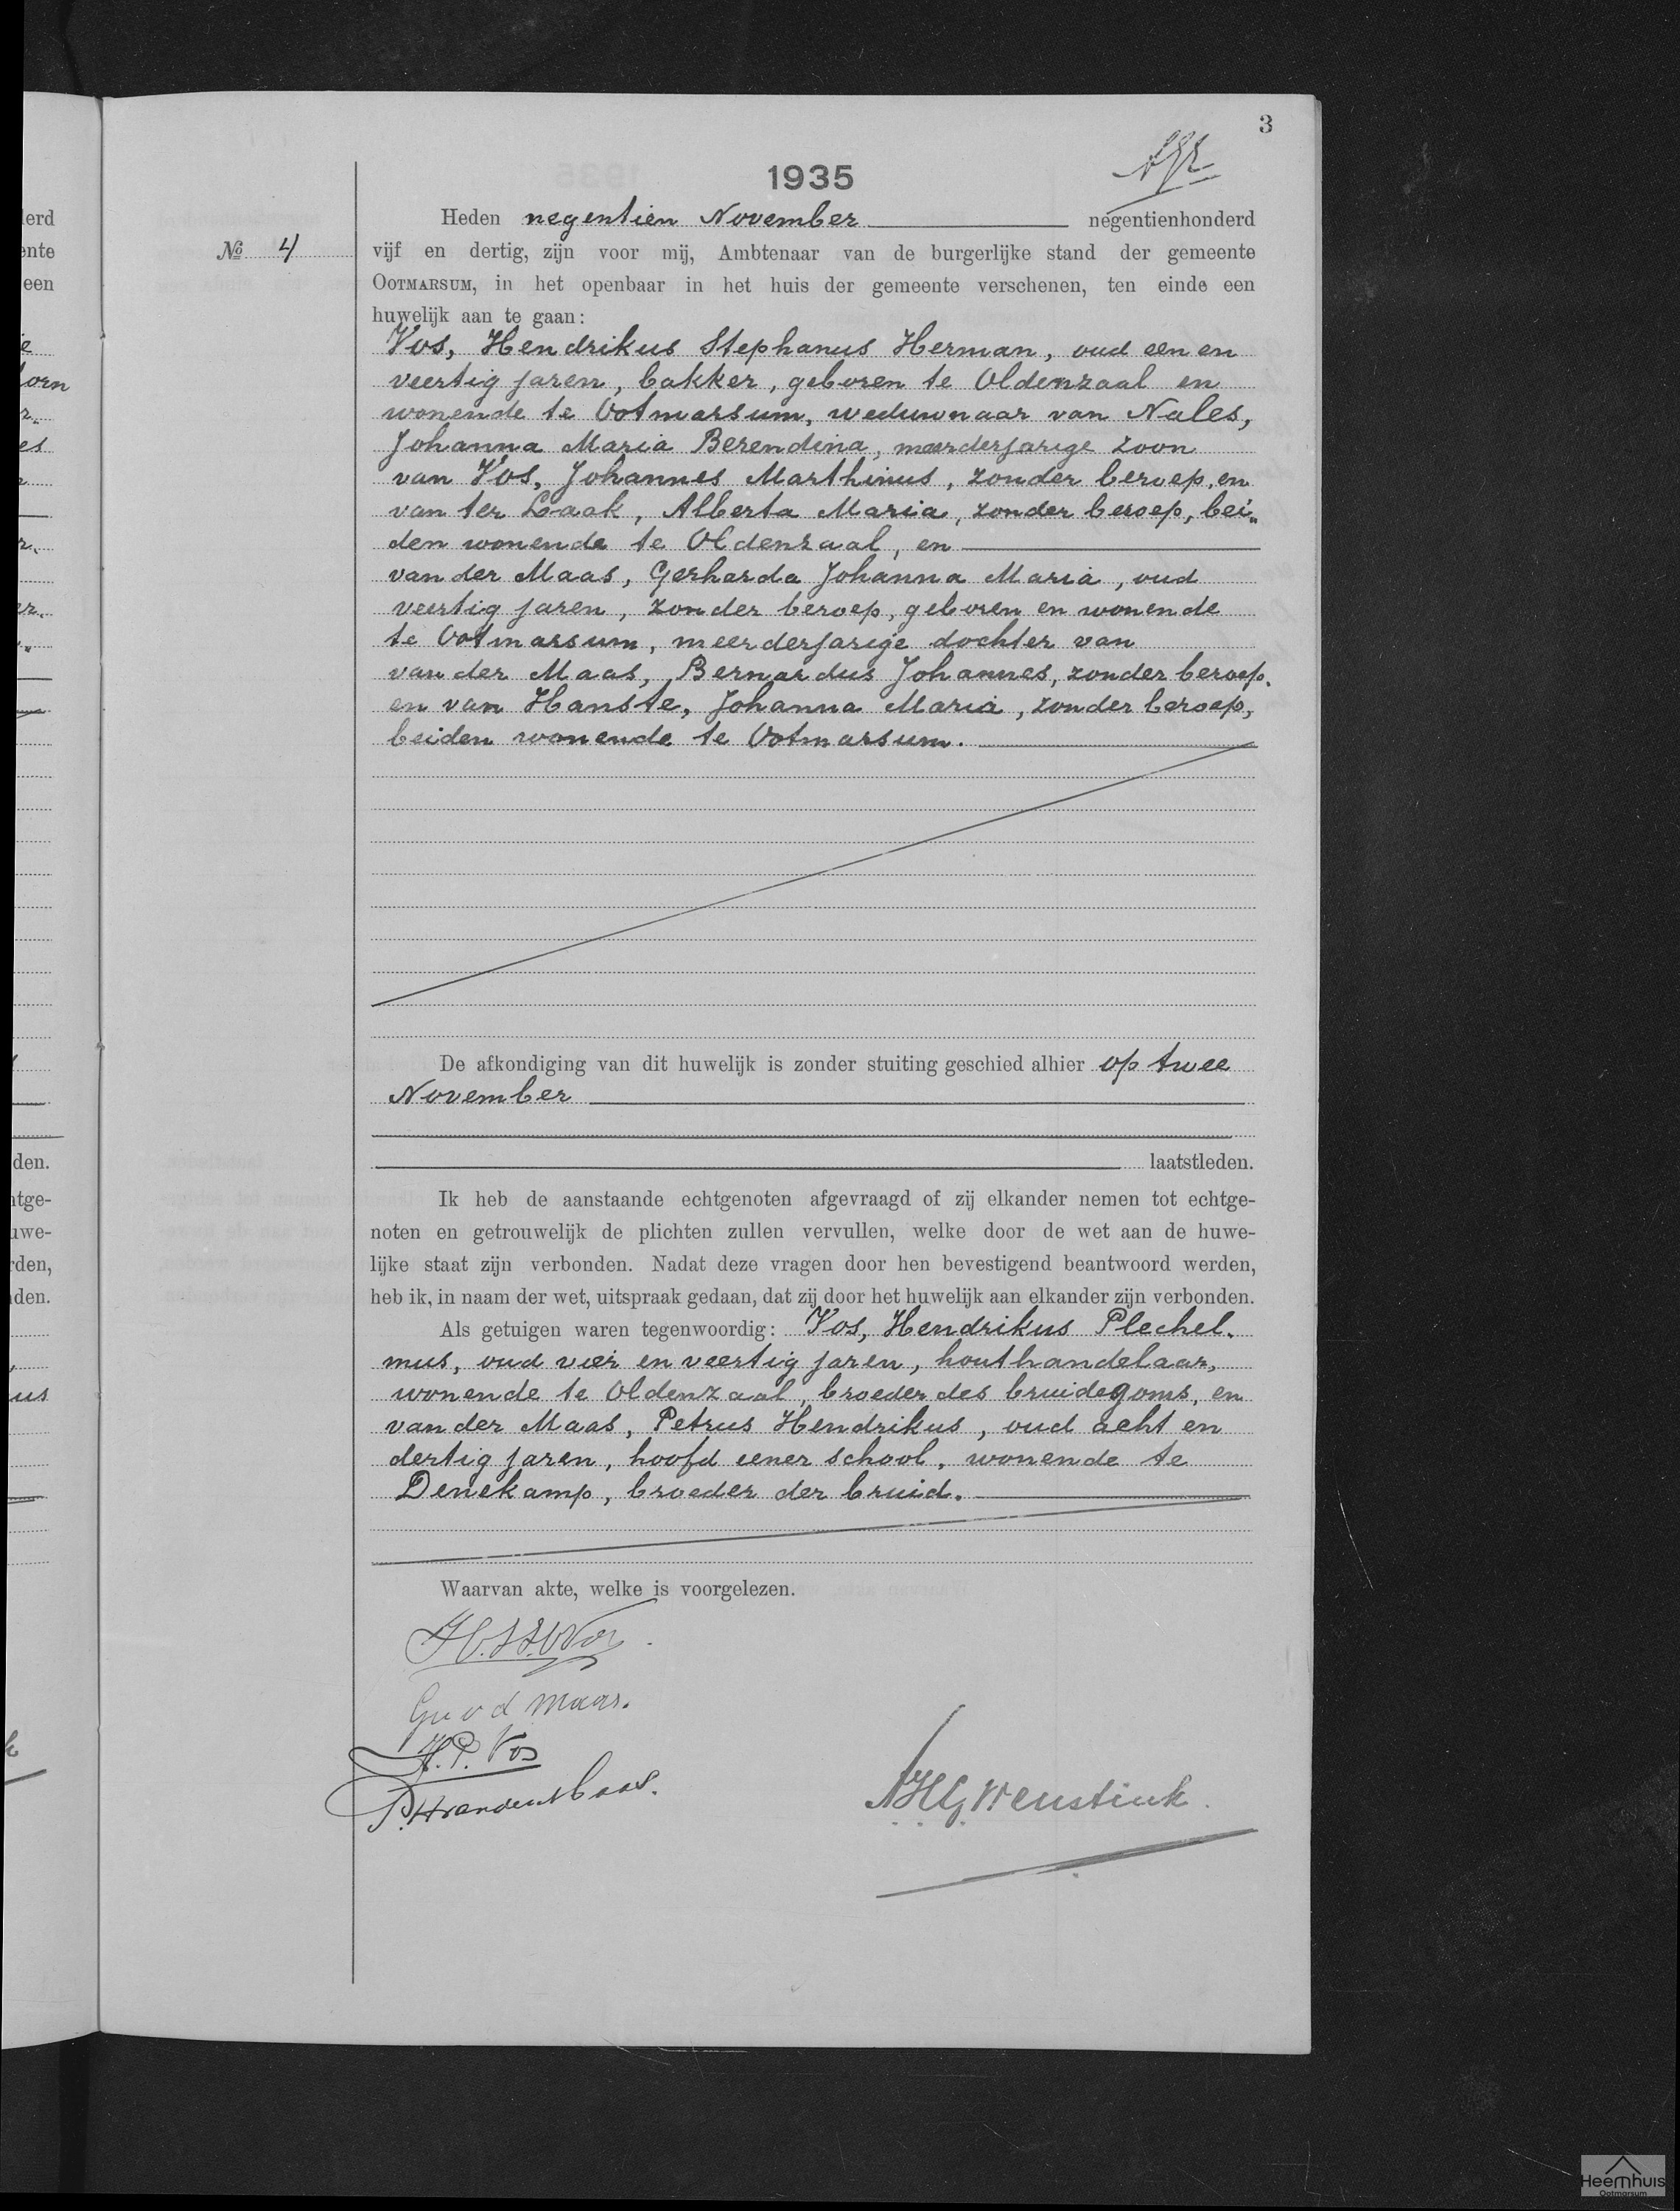 3
1935
Heden negentien November negentienhonderd
No 4
vijf en dertig, zijn voor mij, Ambtenaar van de burgerlijke stand der gemeente
OOTMARSUM, in het openbaar in het huis der gemeente verschenen, ten einde een
huwelijk aan te gaan:
Vos, Hendrikus Stephanus Herman, oud een en
veertig jaren, bakker, geboren te Oldenzaal en
wonende te Ootmarsum, weduwnaar van Nales,
Johanna Maria Berendina, meerderjarige zoon
van Vos, Johannes Marthinus, zonder beroep, en
van ter Laak, Alberta Maria, zonder beroep, bei„
den wonende te Oldenzaal, en
van der Maas, Gerharda Johanna Maria, oud
veertig jaren, zonder beroep, geboren en wonende
te Ootmarsum, meerderjarige dochter van
van der Maas, Bernardus Johannes, zonder beroep,
en van Hanste, Johanna Maria, zonder beroep,
beiden wonende te Ootmarsum.
De afkondiging van dit huwelijk is zonder stuiting geschied alhier op twee
November
laatstleden.
Ik heb de aanstaande echtgenoten afgevraagd of zij elkander nemen tot echtge-
noten en getrouwelijk de plichten zullen vervullen, welke door de wet aan de huwe-
lijke staat zijn verbonden. Nadat deze vragen door hen bevestigend beantwoord werden,
heb ik, in naam der wet, uitspraak gedaan, dat zij door het huwelijk aan elkander zijn verbonden.
Als getuigen waren tegenwoordig: Vos, Hendrikus Plechel-
mus, oud vier en veertig jaren, houthandelaar,
wonende te Oldenzaal, broeder des bruidegoms, en
van der Maas, Petrus Hendrikus, oud acht en
dertig jaren, hoofd eener school, wonende te
Denekamp, broeder der bruid.
Waarvan akte, welke is voorgelezen.
H.S.H. Vos
G v d Maas.
H.P. Vos
P.H. van der Maas.
Heemhuis
Ootmarsum